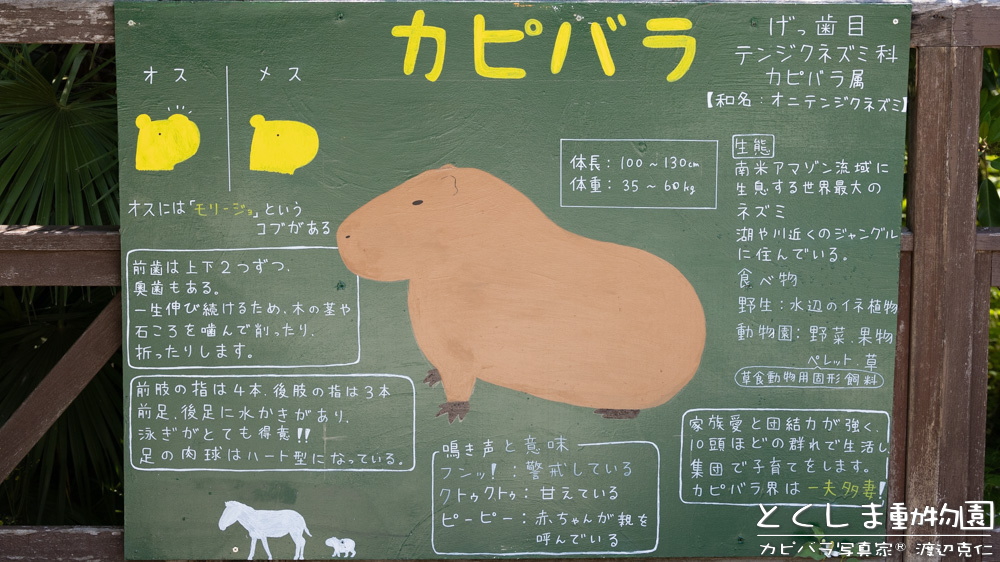 カピバラ
げっ歯目
テンジクネズミ科
カピバラ属
【和名：オニテンジクネズミ】
オス
メス
オスには「モリージョ」という
コブがある
体長：100～130cm
体重：35～60kg
生態
南米アマゾン流域に
生息する世界最大の
ネズミ
湖や川近くのジャングル
に住んでいる。
食べ物
野生：水辺のイネ植物
動物園：野菜.果物
ペレット.草
草食動物用固形飼料
前歯は上下2つずつ.
奥歯もある。
一生伸び続けるため.木の茎や
石ころを噛んで削ったり.
折ったりします。
前肢の指は4本.後肢の指は3本
前足.後足に水かきがあり.
泳ぎがとても得意!!
足の肉球はハート型になっている。
鳴き声と意味
フンッ!：警戒している
クトゥクトゥ：甘えている
ピーピー：赤ちゃんが親を
呼んでいる
家族愛と団結力が強く.
10頭ほどの群れで生活し
集団で子育てをします。
カピバラ界は一夫多妻!
とくしま動物園
カピバラ写真家® 渡辺克仁